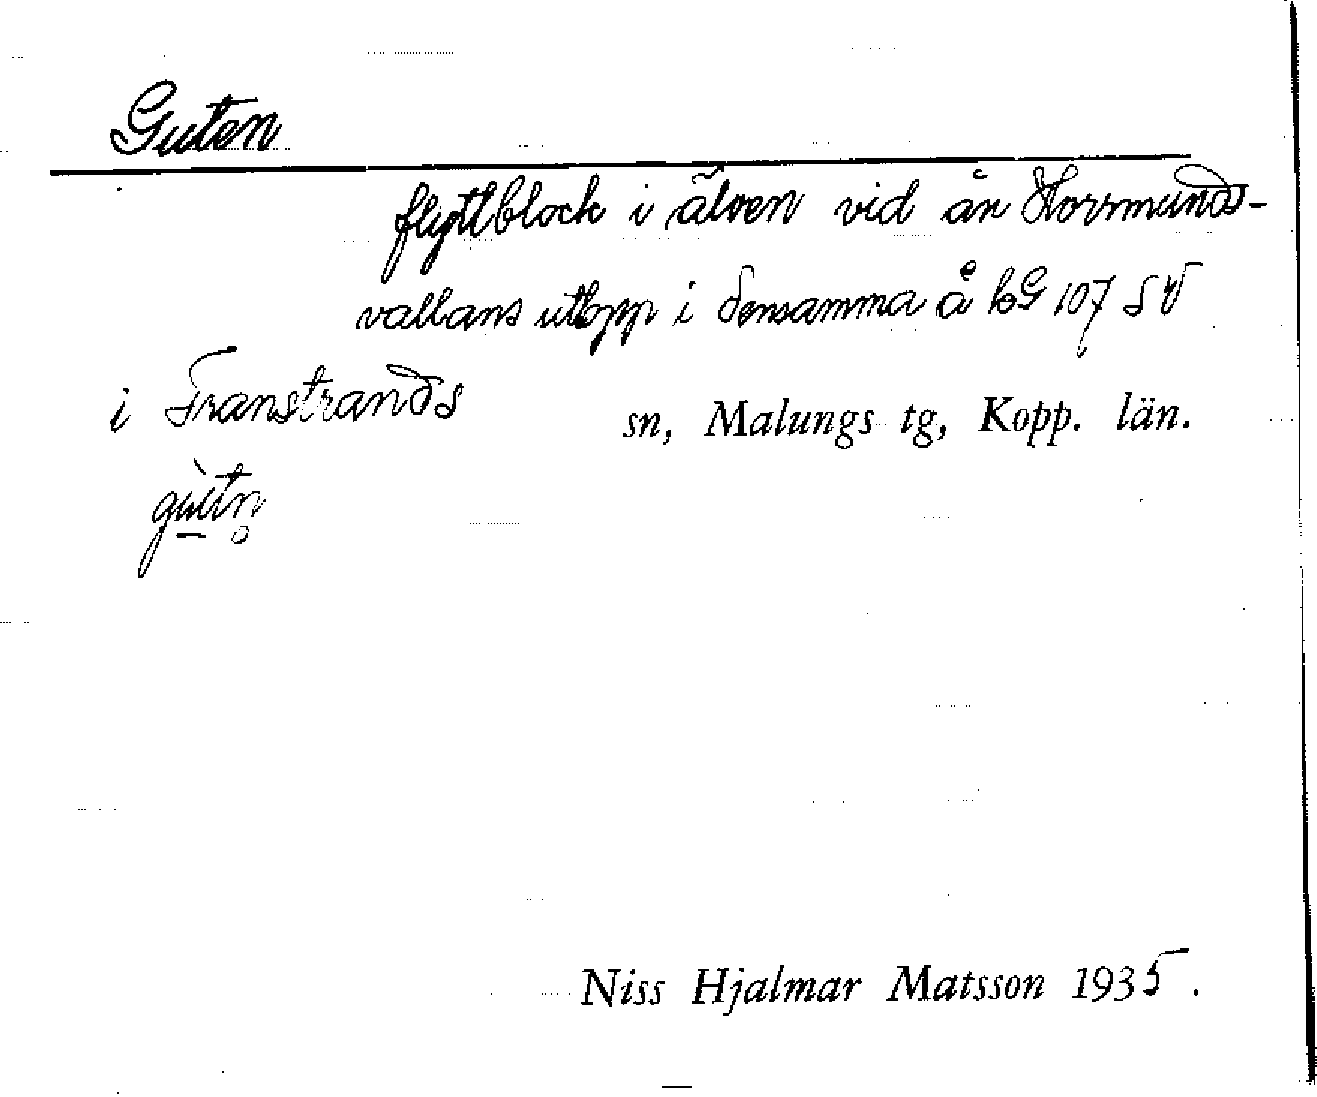 Guten
flyttblock i älven vid ån Horrmunds-
vallans utlopp i densamma å bG 107 SV
i Transtrands sn, Malungs tg, Kopp. län.
gùtn̥
Niss Hjalmar Matsson 1935.